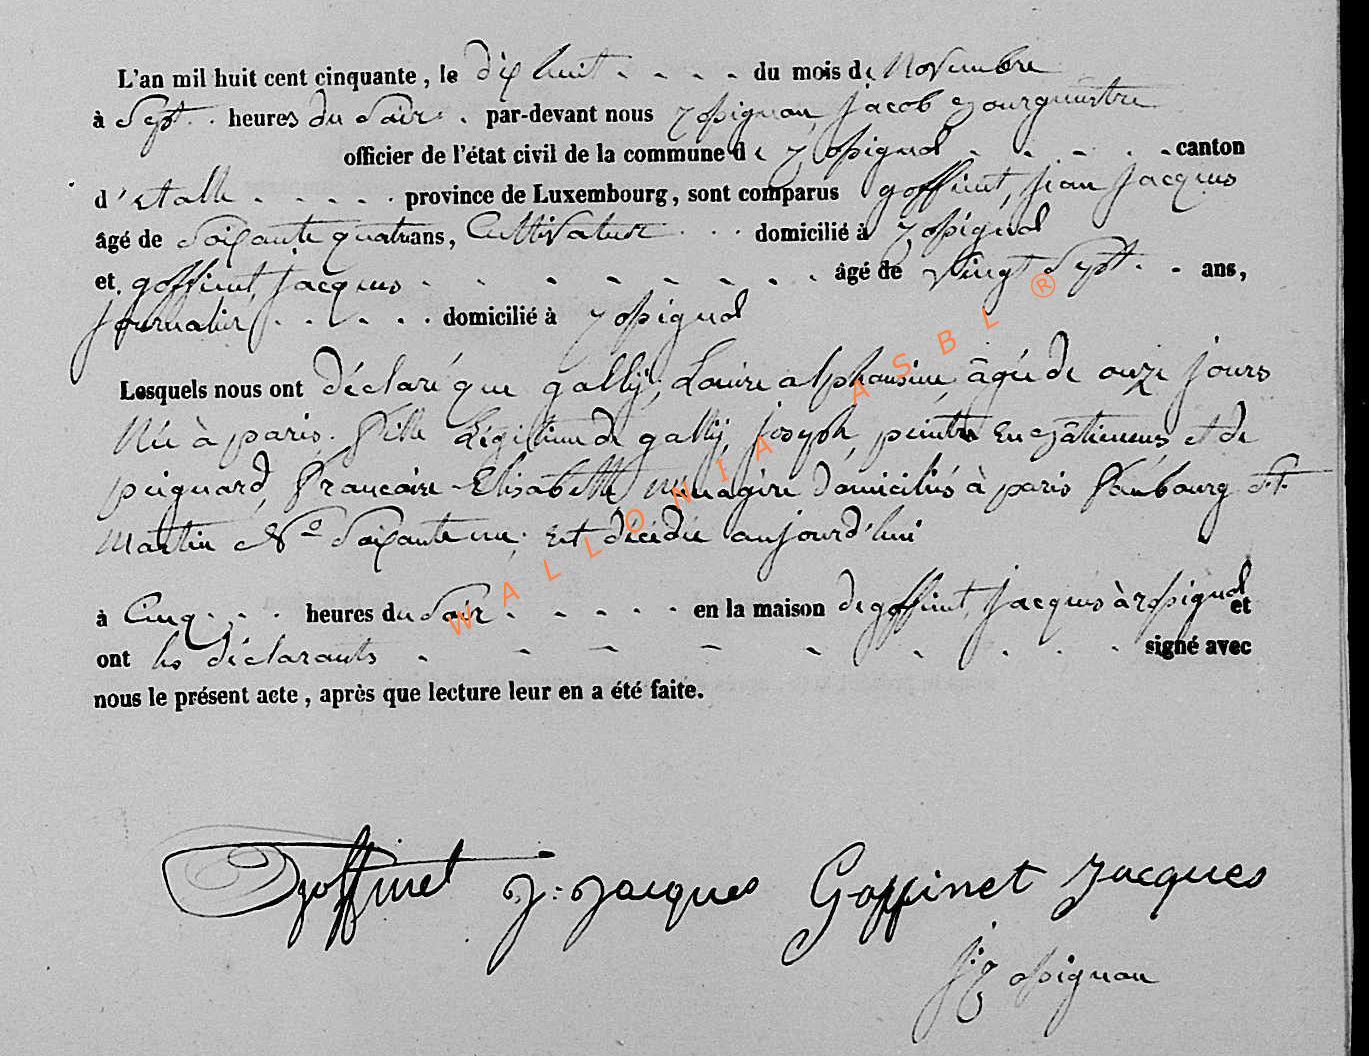 L'an mil huit cent cinquante, le dix huit - - - - du mois de Novembre
à Sept - - heures du Soir - - par-devant nous Rossignon, Jacob Bourguestre
officier de l'état civil de la commune de Rossignol - - - - - canton
d'Etalle - - - - - province de Luxembourg, sont comparus goffinet, jean Jacques
âgé de Soixante quatre ans, Cultivateur - - - domicilié à Rossignol
et goffinet, Jacques - - - - - - - - âgé de Vingt Sept - - ans,
Journalier - - - - - - domicilié à Rossignol
Lesquels nous ont déclaré que gallij, Louise alphonsine, âgée de onze jours
Née à paris, fille Légitime de gallij, joseph, peintre en Bâtiments, et de
peignard, francoise Elisabette ménagère domiciliés à paris faubourg St
Martin No Soixante une, Est décédée aujourd'hui
à Cinq - - - heures du Soir - - - - - en la maison de goffinet, Jacques à rossignol et
ont les déclarants - - - - - - - - - signé avec
nous le présent acte, après que lecture leur en a été faite.
goffinet J: Jacques Goffinet Jacques
J: Rossignon
WALLONIA ASBL ®